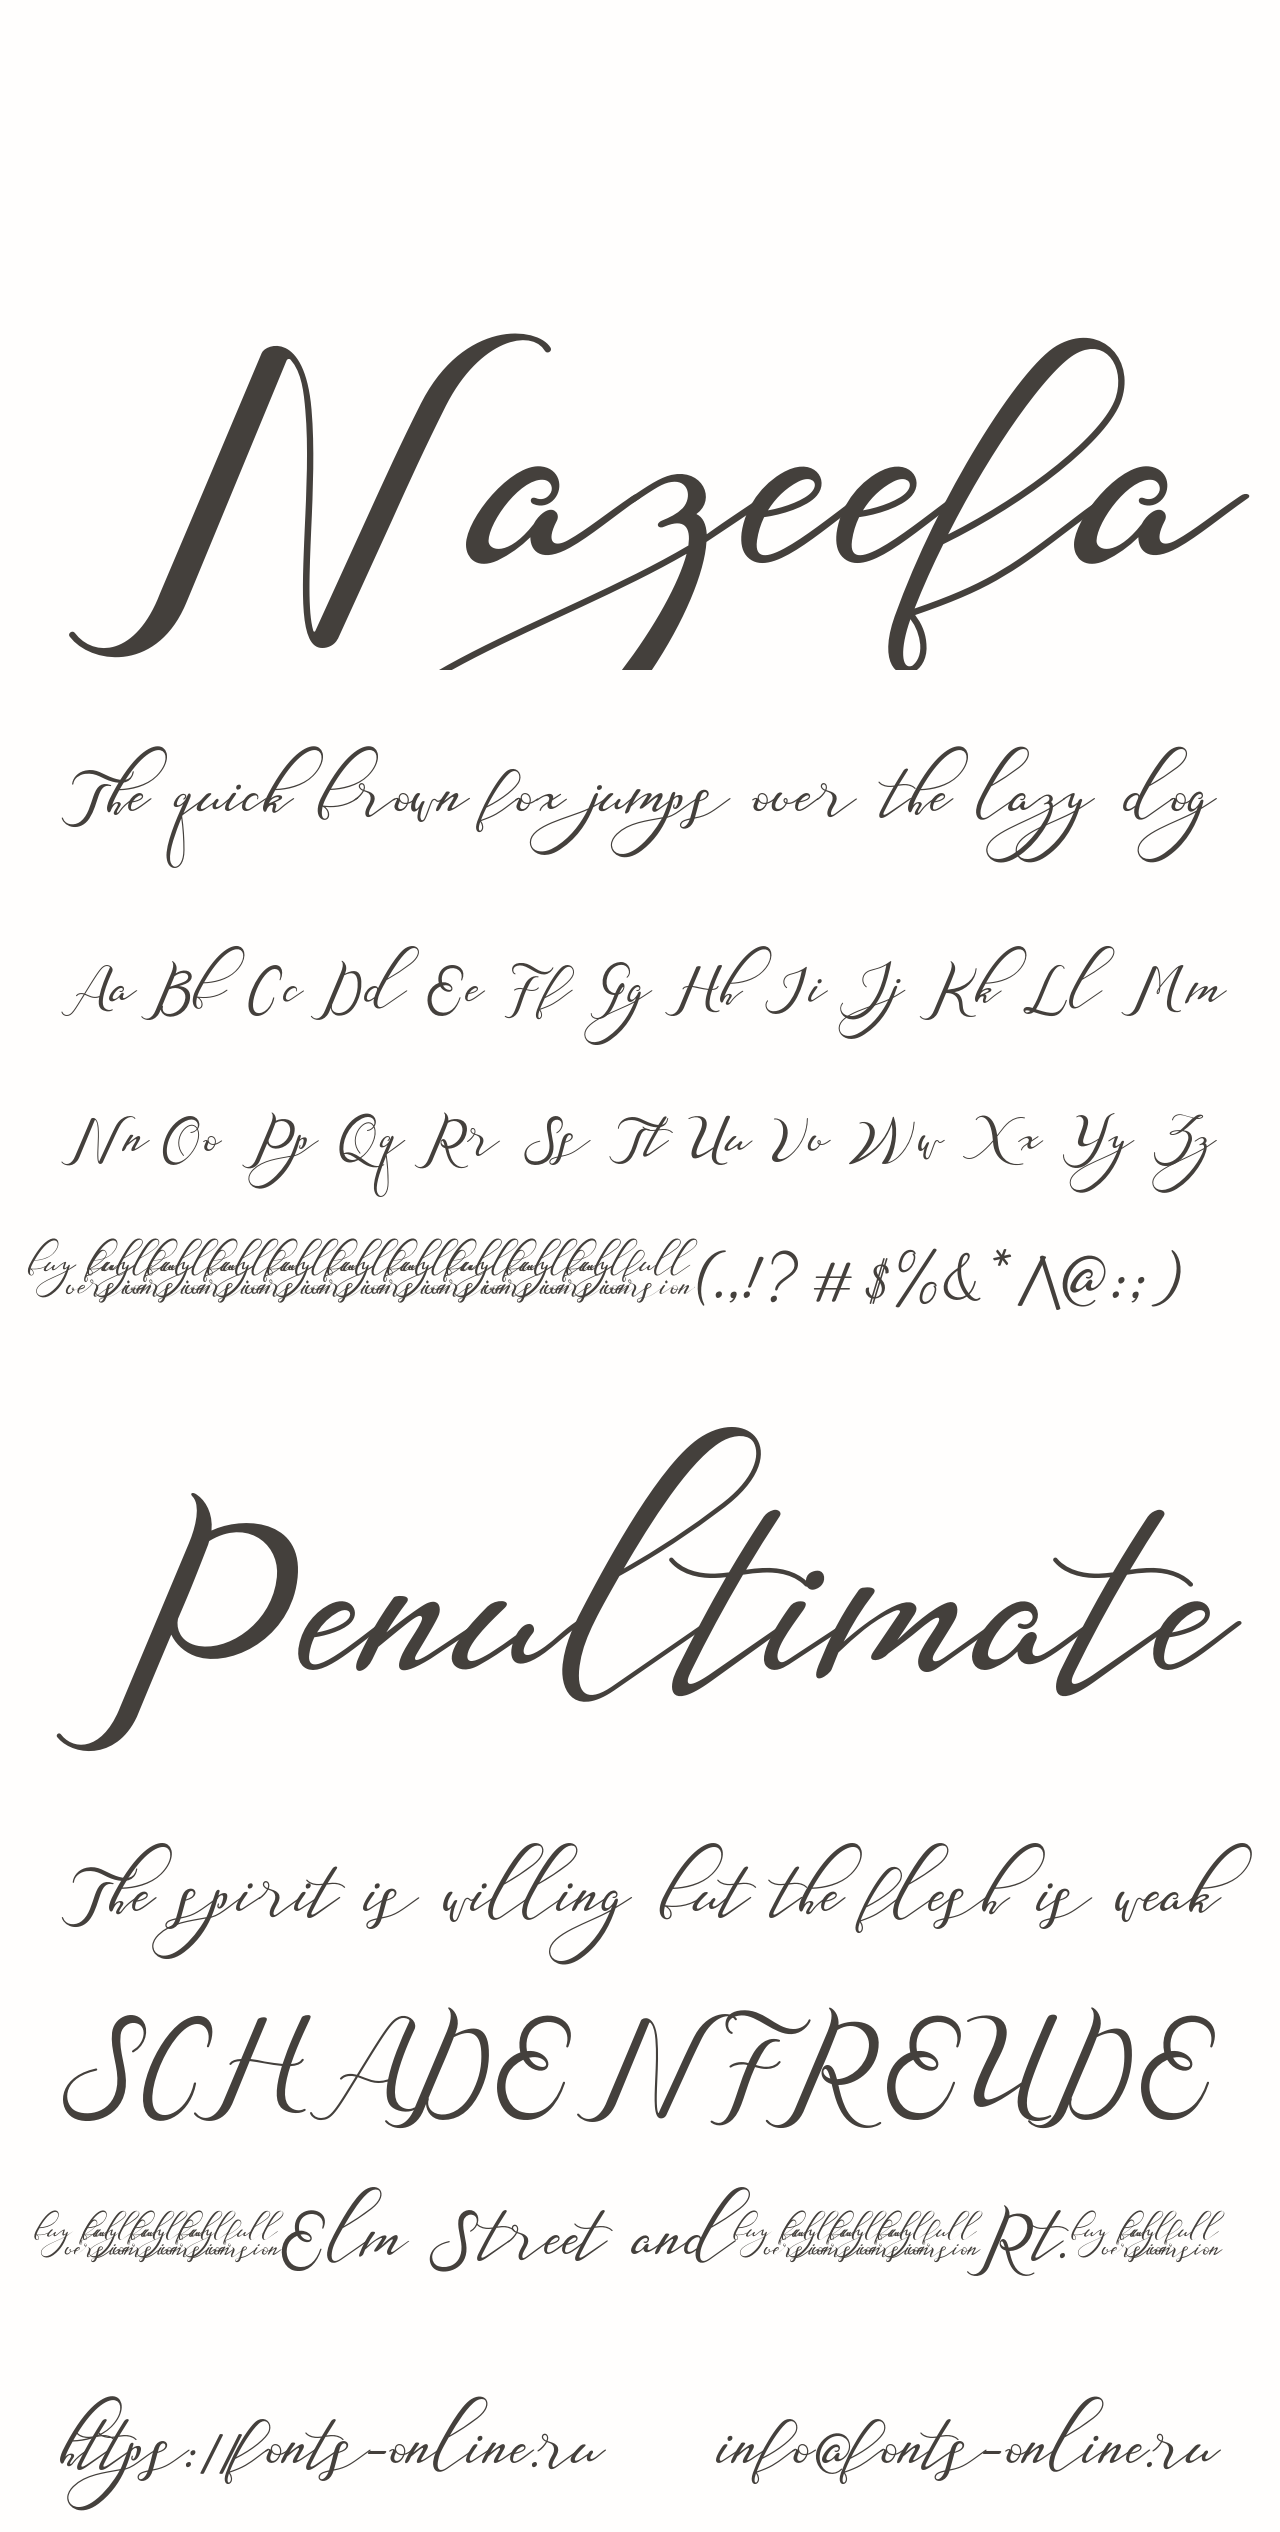 Nazeefa
The quick brown fox jumps over the lazy dog
Aa Bb Cc Dd Ee Ff Gg Hh Ii Jj Kk Ll Mm
Nn Oo Pp Qq Rr Ss Tt Uu Vv Ww Xx Yy Zz
(.,!? # $%&*/\@:;)
Penultimate
The spirit is willing but the flesh is weak
SCHADENFREUDE
Elm Street and Rt.
https://fonts-online.ru info@fonts-online.ru